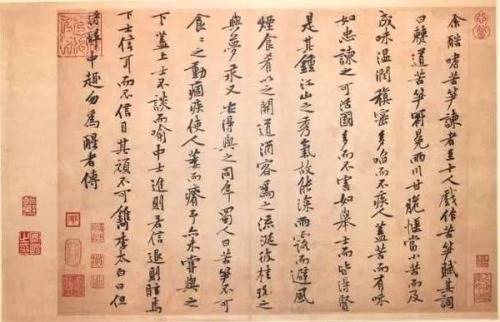 余酷嗜苦筍諫者至十人戲作苦筍賦其詞
曰僰道苦筍冠冕兩川甘脆愜當小苦而及
成味溫潤縝密多啗而不疾人蓋苦而有味
如忠諫之可活國多而不害如舉士而皆得賢
是其鍾江山之秀氣故能深雨露而避風
煙食肴以之開道酒客為之流涎彼桂玫之
與夢永又安得與之同年蜀人曰苦筍不可
食食之動痼疾使人萎而瘠予亦未嘗與之
下蓋上士不談而喻中士進則若信退則眩焉
下士信耳而不信目其頑不可鐫李太白曰但
得醉中趣勿為醒者傳